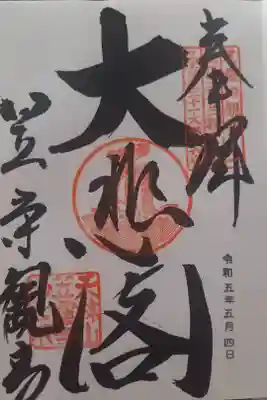 奉拝
令和五年五月四日
大悲閣
笠森観音